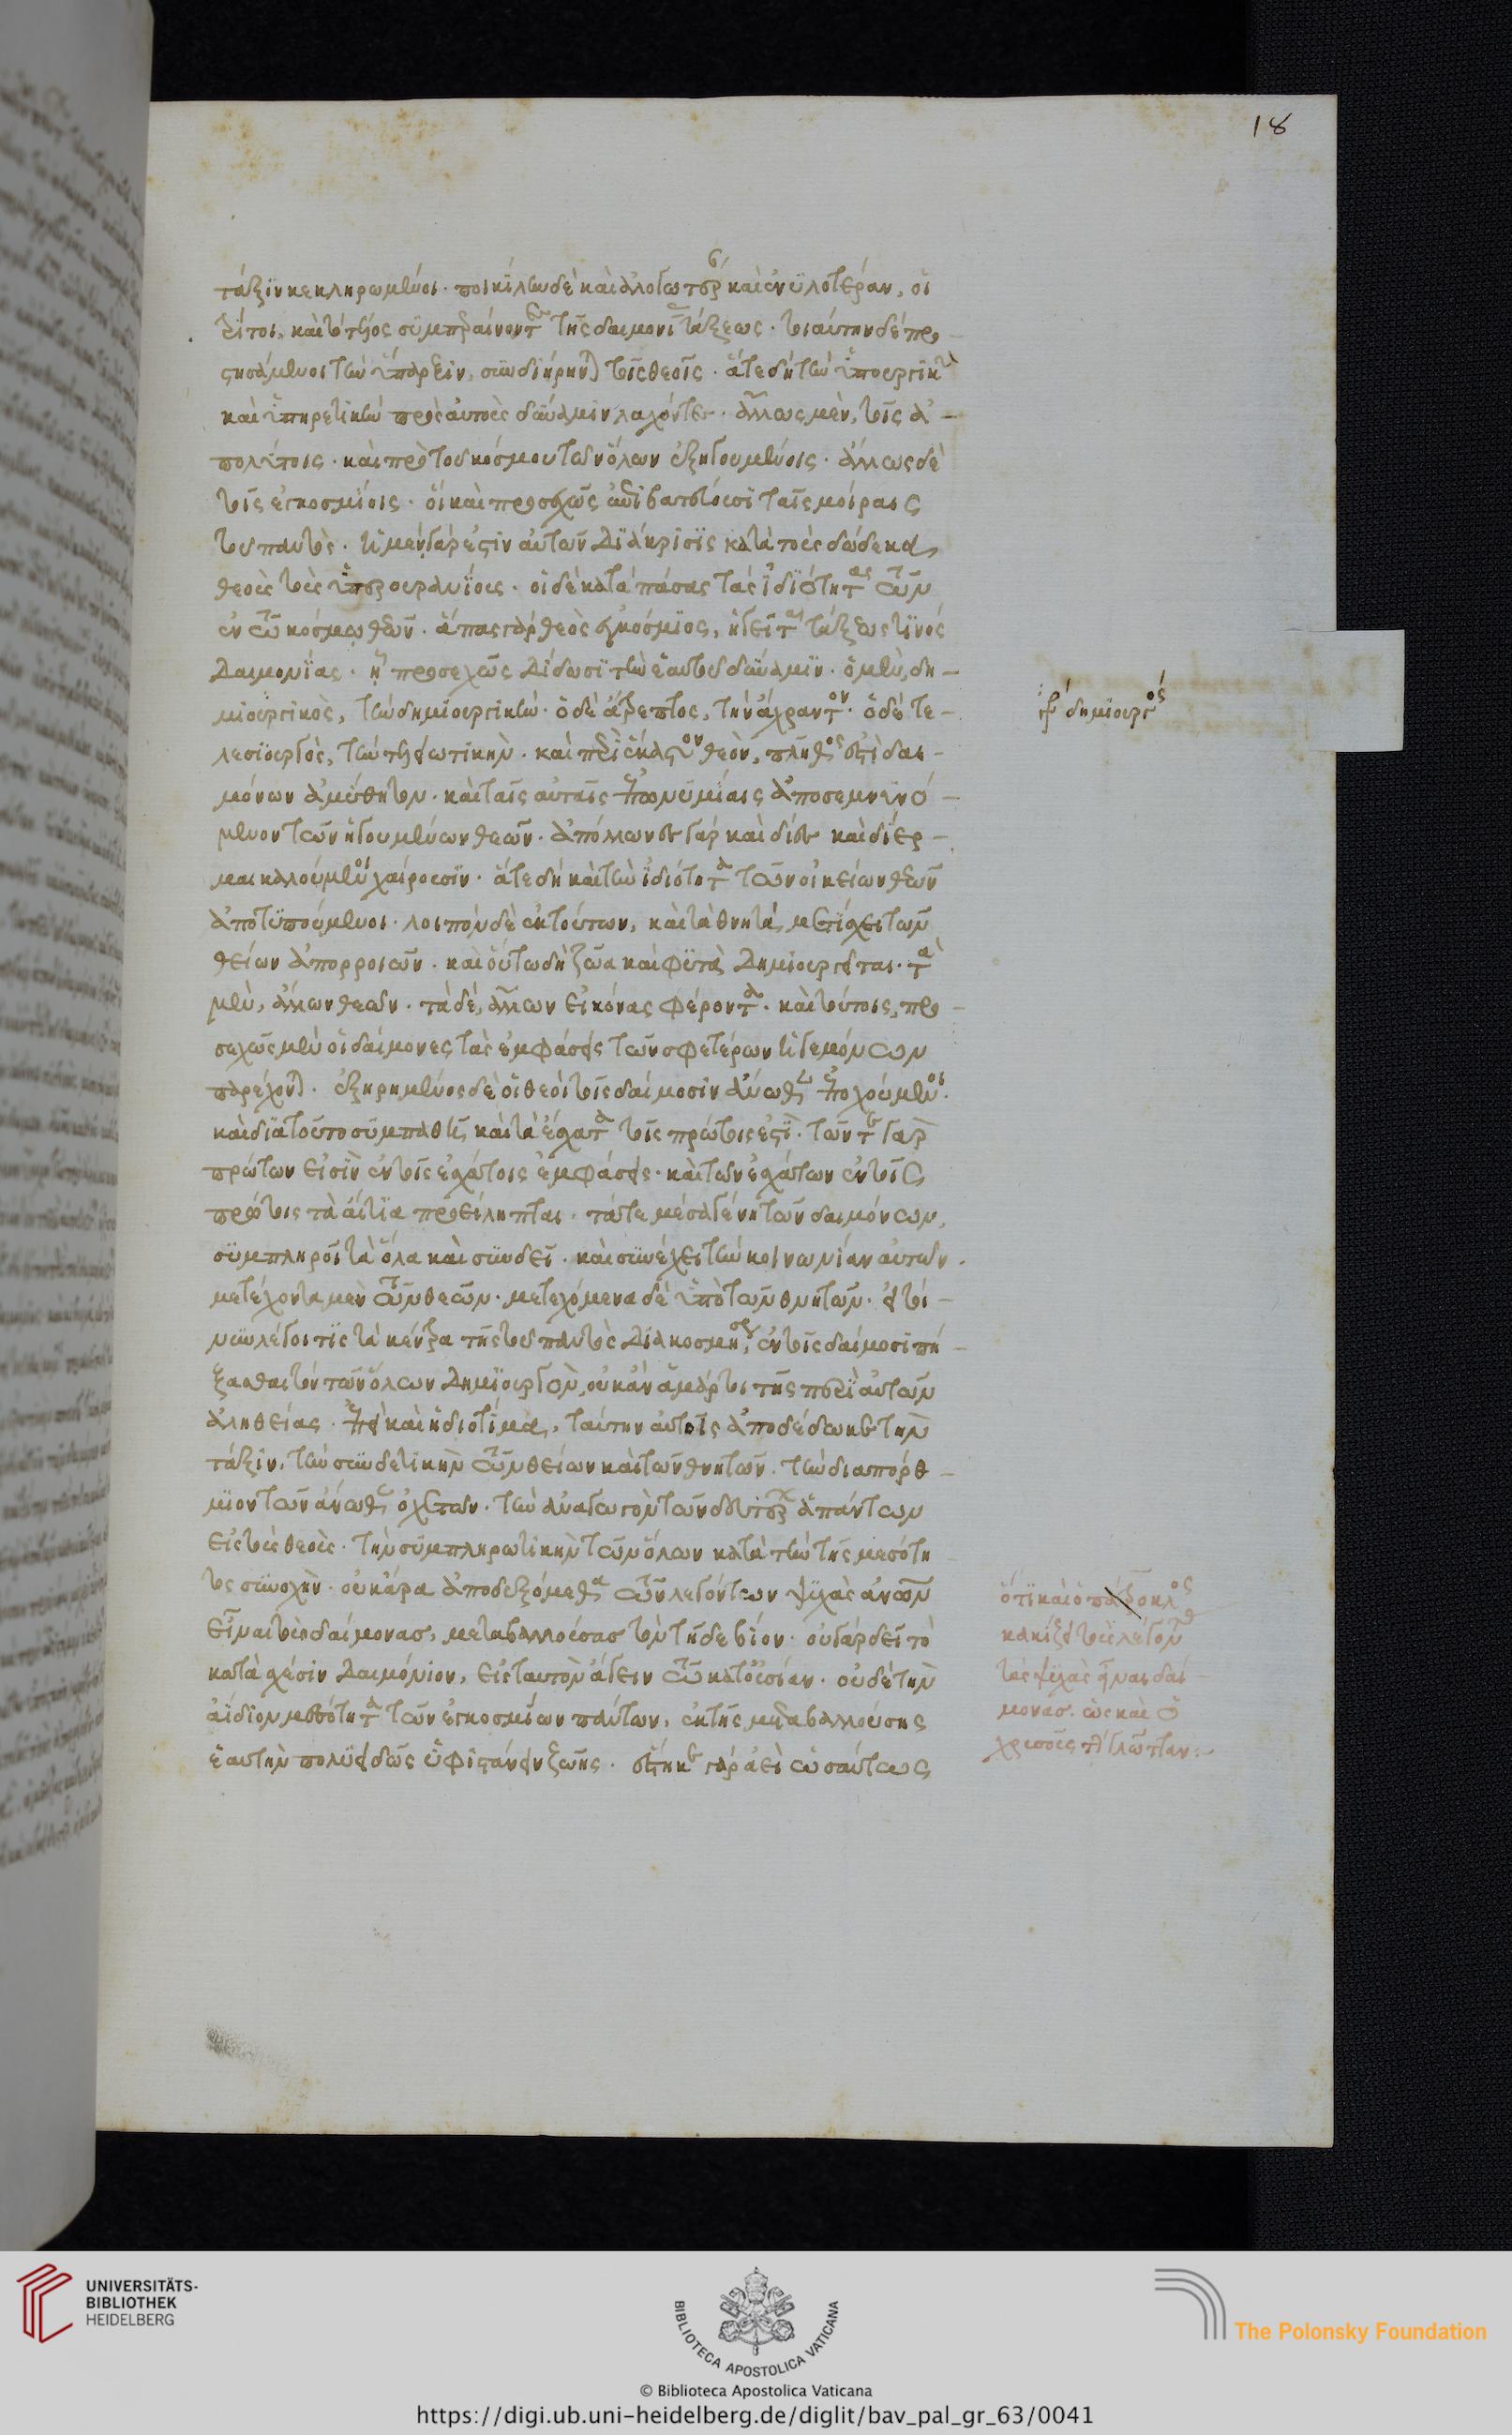 18
τάξιν κεκληρωμένοι. ποικίλην δὲ καὶ ἀλογωτέρ καὶ ἐνϋλοτέραν, οἱ
τρίτοι, καὶ τὸ τέλος συμπεραίνοντ τῆς δαιμονί τάξεως. τοιαύτην δὲ προ-
στησάμενοι τὴν ὕπαρξιν, συνδιῄρην τοῖς θεοῖς. ἅτε δὴ τὴν ὑπουργικὴν
καὶ ὑπηρετικὴν πρὸς αὐτοὺς δύναμιν λαχόντες. ἄλλως μὲν, τοῖς ἀ-
πολύτοις. καὶ πρὸ τοῦ κόσμου τῶν ὅλων ἐξηγουμένοις. ἄλλως δὲ
τοῖς ἐγκοσμίοις. οἳ καὶ προσεχῶς ἐπιβατεύουσι ταῖς μοίραις
τοῦ παντὸς. ἡ μὲν γάρ ἐστιν αὐτῶν διάκρισις κατὰ τοὺς δώδεκα
θεοὺς τοὺς ὑπερουρανίους. οἱ δὲ κατὰ πάσας τὰς ἰδιότητας τῶν
ἐν τῷ κόσμῳ θεῶν. ἅπας γὰρ θεὸς ἐγκόσμιος, ἡγεῖται τάξεως τινός
δαιμονίας. ᾗ προσεχῶς δίδωσι τὴν ἑαυτοῦ δύναμιν. ὁ μὲν, δη-
μιουργικὸς, τὴν δημιουργικὴν. ὁ δὲ ἄτρεπτος, τὴν ἄχραντον. ὁ δὲ τε-
λεσιουργὸς, τὴν τελεωτικὴν. καὶ περὶ ἕκαστον θεὸν, πλῆθος ἐστὶ δαι-
μόνων ἀμύθητον. καὶ ταῖς αὐταῖς ἐπωνυμίαις ἀποσεμνυνό-
μενον τῶν ἡγουμένων θεῶν. ἀπόλλωνες γὰρ καὶ δίες καὶ ἑρ-
μαι καλούμενοι χαίρουσιν. ἅτε δὴ καὶ τὴν ἰδιότητα τῶν οἰκείων θεῶν
ἀποτυπούμενοι. λοιπὸν δὲ ἐκ τούτων, καὶ τὰ θνητά, μετέχει τῶν
θείων ἀπορροιῶν. καὶ οὕτω δὴ ζῶα καὶ φυτὰ δημιουργεῖται. τὰ
μὲν, ἄλλων θεῶν. τὰ δέ, ἄλλων εἰκόνας φέροντα. καὶ τούτοις, προ-
σεχῶς μὲν οἱ δαίμονες τὰς ἐμφάσεις τῶν σφετέρων ἡγεμόνων
παρέχον. ἐξῃρημένως δὲ οἱ θεοὶ τοῖς δαίμοσιν ἄνωθεν ἐποχούμενοι.
καὶ διὰ τοῦτο συμπαθῆ, καὶ τὰ ἔσχατα τοῖς πρώτοις ἐστὶ. τῶν τε γὰρ
πρώτων εἰσὶν ἐν τοῖς ἐσχάτοις ἐμφάσεις. καὶ τῶν ἐσχάτων ἐν τοῖς
πρώτοις τὰ αἴτια προείληπται. τά τε μέσα γένη τῶν δαιμόνων,
συμπληροῖ τὰ ὅλα καὶ συνδεῖ. καὶ συνέχει τὴν κοινωνίαν αὐτῶν.
μετέχοντα μὲν τῶν θεῶν. μετεχόμενα δὲ ὑπὸ τῶν θνητῶν. εἰ τοί-
νυν λέγοι τὶς τὰ κέντρα τῆς τοῦ παντὸς διακοσμήσεως, ἐν τοῖς δαίμοσι πή-
ξασθαι τὸν τῶν ὅλων δημιουργὸν, οὐκ ἂν ἁμάρτοι τῆς περὶ αὐτῶν
ἀληθείας. ἐπεὶ καὶ ἡ διοτίμα, ταύτην αὐτοῖς ἀποδέδωκε τὴν
τάξιν, τὴν συνδετικὴν τῶν θείων καὶ τῶν θνητῶν. τὴν διαπόρθ-
μιον τῶν ἄνωθεν ὀχετῶν. τὴν ἀναγωγὸν τῶν δευτέρων ἁπάντων
εἰς τοὺς θεοὺς. τὴν συμπληρωτικὴν τῶν ὅλων κατὰ τὴν τῆς μεσότη-
τος συνοχὴν. οὐκ ἄρα ἀποδεξόμεθα τῶν λεγόντων ψυχὰς ἀνῶν
εἶναι τοὺς δαίμονας, μεταβαλλούσας τὸν τῇδε βίον. οὐ γὰρ δεῖ τὸ
κατὰ σχέσιν δαιμόνιον, εἰς ταυτὸν ἄγειν τῷ κατ' οὐσίαν. οὐδὲ τὴν
ἀίδιον μεσότητα τῶν ἐγκοσμίων πάντων, ἐκ τῆς μεταβαλλούσης
ἑαυτὴν πολυειδῶς ὑφιστάνειν ζωῆς. ἕστηκε γὰρ ἀεὶ ὡσαύτως
δημιουργός
ὅτι καὶ ὁ πρόκλος
κακίζει τοὺς λέγον
τὰς ψυχὰς εἶναι δαί-
μονας. ὡς καὶ ὁ
χρυσοῦς τὴν γλῶτταν:-
UNIVERSITÄTS-
BIBLIOTHEK
HEIDELBERG
BIBLIOTECA APOSTOLICA VATICANA
The Polonsky Foundation
© Biblioteca Apostolica Vaticana
https://digi.ub.uni-heidelberg.de/diglit/bav_pal_gr_63/0041